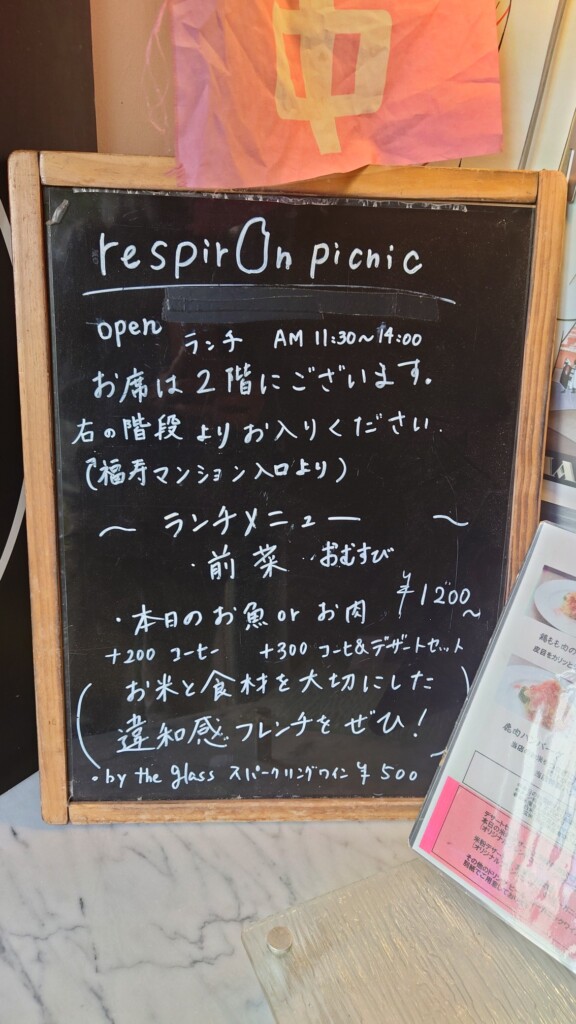 中
respirOn picnic
open ランチ AM 11:30～14:00
お席は2階にございます。
右の階段よりお入りください.
(福寿マンション入口より)
～ ランチメニュー ～
・前菜 おむすび
・本日のお魚 or お肉 ¥1200～
+200 コーヒー +300 コーヒ&デザートセット
(お米と食材を大切にした
違和感フレンチをぜひ!)
・by the glass スパークリングワイン ¥500
鶏もも肉の
鹿肉ハンバー